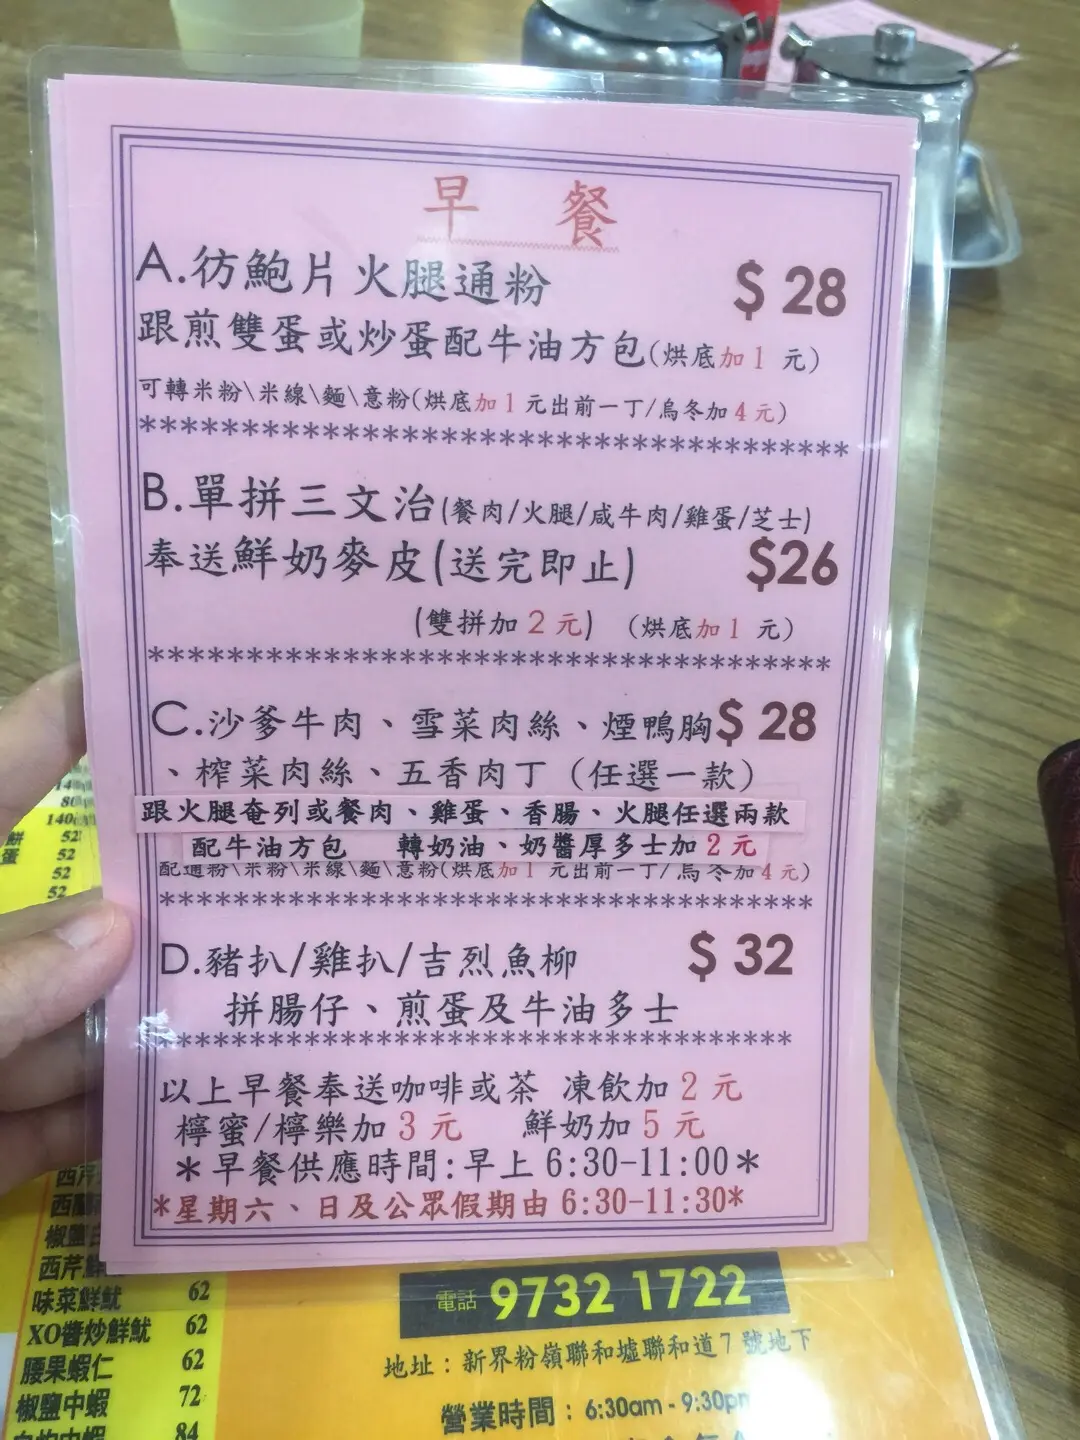 早 餐
A.彷鮑片火腿通粉 $ 28
跟煎雙蛋或炒蛋配牛油方包(烘底加1 元)
可轉米粉\米線\麵\意粉(烘底加1元出前一丁/烏冬加4元)
************************************
B.單拼三文治(餐肉/火腿/咸牛肉/雞蛋/芝士)
奉送鮮奶麥皮(送完即止) $26
(雙拼加2元) (烘底加1 元)
************************************
C.沙爹牛肉、雪菜肉絲、煙鴨胸$ 28
、榨菜肉絲、五香肉丁(任選一款)
跟火腿奄列或餐肉、雞蛋、香腸、火腿任選兩款
配牛油方包 轉奶油、奶醬厚多士加2元
配通粉\米粉\米線\麵\意粉(烘底加1 元出前一丁/烏冬加4元)
************************************
D.豬扒/雞扒/吉烈魚柳 $ 32
拼腸仔、煎蛋及牛油多士
************************************
以上早餐奉送咖啡或茶 凍飲加2元
檸蜜/檸樂加3元 鮮奶加5元
*早餐供應時間:早上6:30-11:00*
*星期六、日及公眾假期由6:30-11:30*
140
餅 52
蛋 52
52
52
西芹
西
椒鹽
西芹鮮
味菜鮮魷 62
XO醬炒鮮魷 62
腰果蝦仁 62
椒鹽中蝦 72
中蝦 84
電話 9732 1722
地址：新界粉嶺聯和墟聯和道7號地下
營業時間：6:30am - 9:30pm